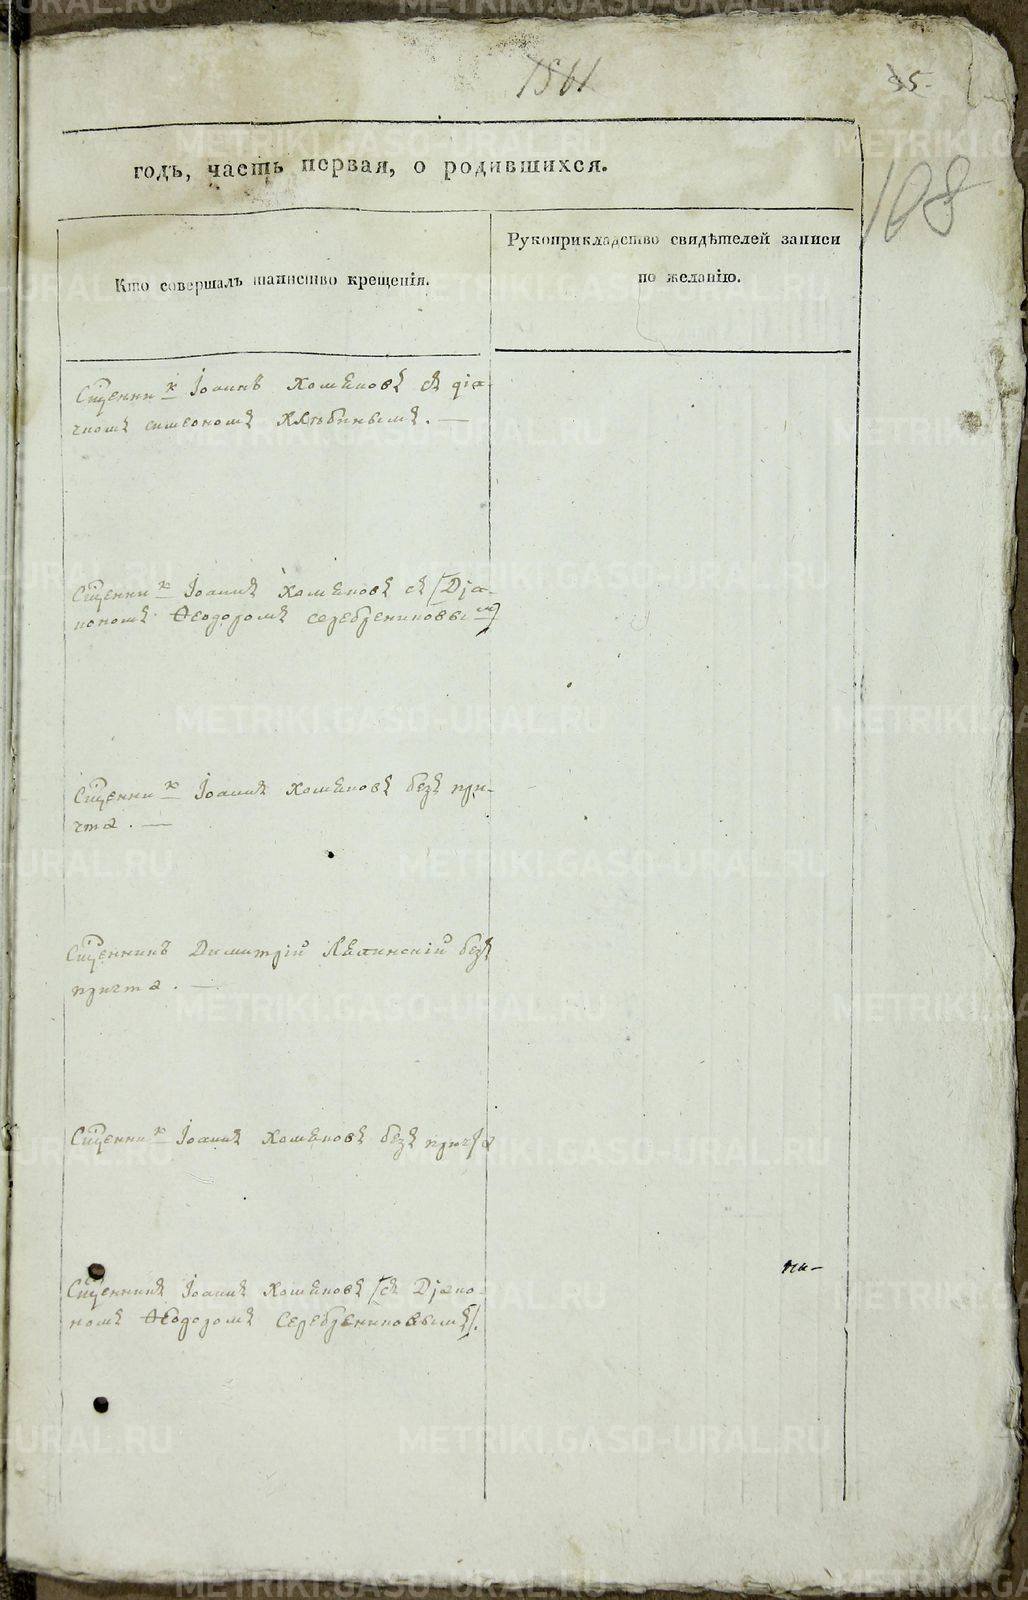 1861
35.
108
годъ, часть первая, о родившихся.
Кто совершалъ таинство крещенія.
Рукоприкладство свидѣтелей записи
по желанію.
Сщенникъ Іоаннъ Хомяковъ съ діа-
чкомъ симеономъ
Сщенникъ Іоаннъ Хомяковъ съ /Діа-
кономъ Ѳеодоромъ серебрениковымъ/
Сщенникъ Іоаннъ Хомяковъ безъ при-
чта. —
Сщенникъ Димитрій безъ
причта. —
Сщенникъ Іоаннъ Хомяковъ безъ причта
Сщенникъ Іоаннъ Хомяковъ /съ Діако-
номъ Ѳеодоромъ Серебрениковымъ/.
METRIKI.GASO-URAL.RU